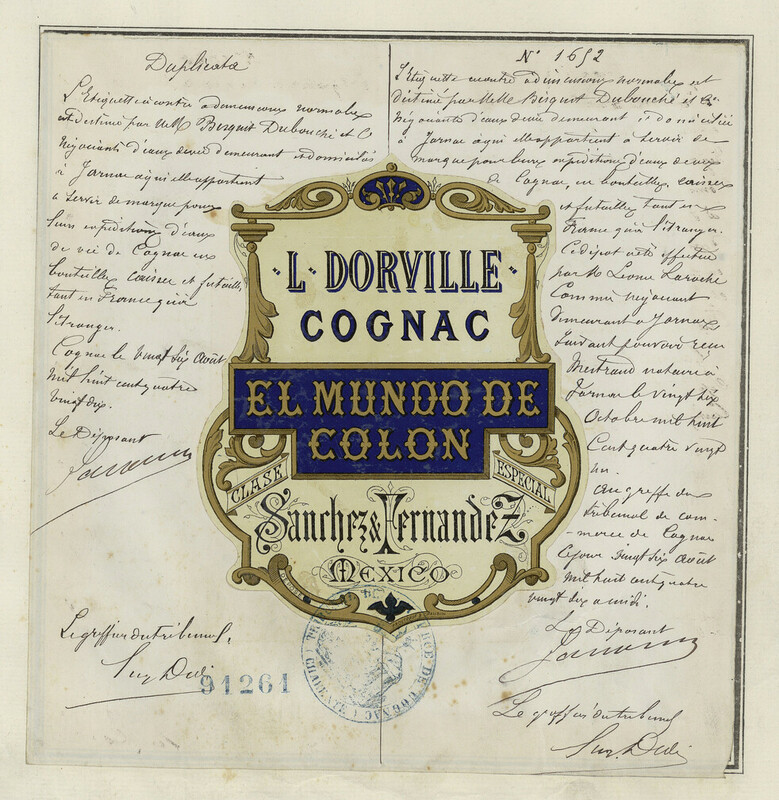 Duplicata
L'Etiquette ci contre a dimensions normales
est destiné par MM Bisquit Dubouché et C
Négociants d'eaux de vie demeurant et domiciliés
à Jarnac à qui elle appartient
a servir de marque pour
leurs expéditions d'eaux
de vie de Cognac en
bouteilles, caisses et futailles
tant en France qu'à
l'étranger.
Cognac le vingt six Août
mil huit cent quatre
vingt dix.
Le Déposant
Le greffier du tribunal,
91261
N° 1652
L'Etiquette contre a dimensions normales est
destiné par Bisquit Dubouché et Cie
Négociants d'eaux de vie demeurant et domiciliés
à Jarnac à qui elle appartient à servir de
marque pour leurs expéditions d'eaux de vie
de Cognac, en bouteilles, caisses
et futailles tant en
France qu'à l'étranger.
Ce dépôt a été effectué
par M Leone Laroche
Commis Négociant
demeurant a Jarnac
suivant pouvoir reçu
Mestraud notaire à
Jarnac le vingt six
Octobre mil huit
Cent quatre vingt
un.
Au greffe du
tribunal de com-
-merce de Cognac
Ce jour vingt six Août
mil huit cent quatre
vingt dix a midi.
Le Déposant
Le greffier du tribunal
·L· DORVILLE·
COGNAC
EL MUNDO DE
COLON
CLASE ESPECIAL
Sanchez & Fernandez
MEXICO